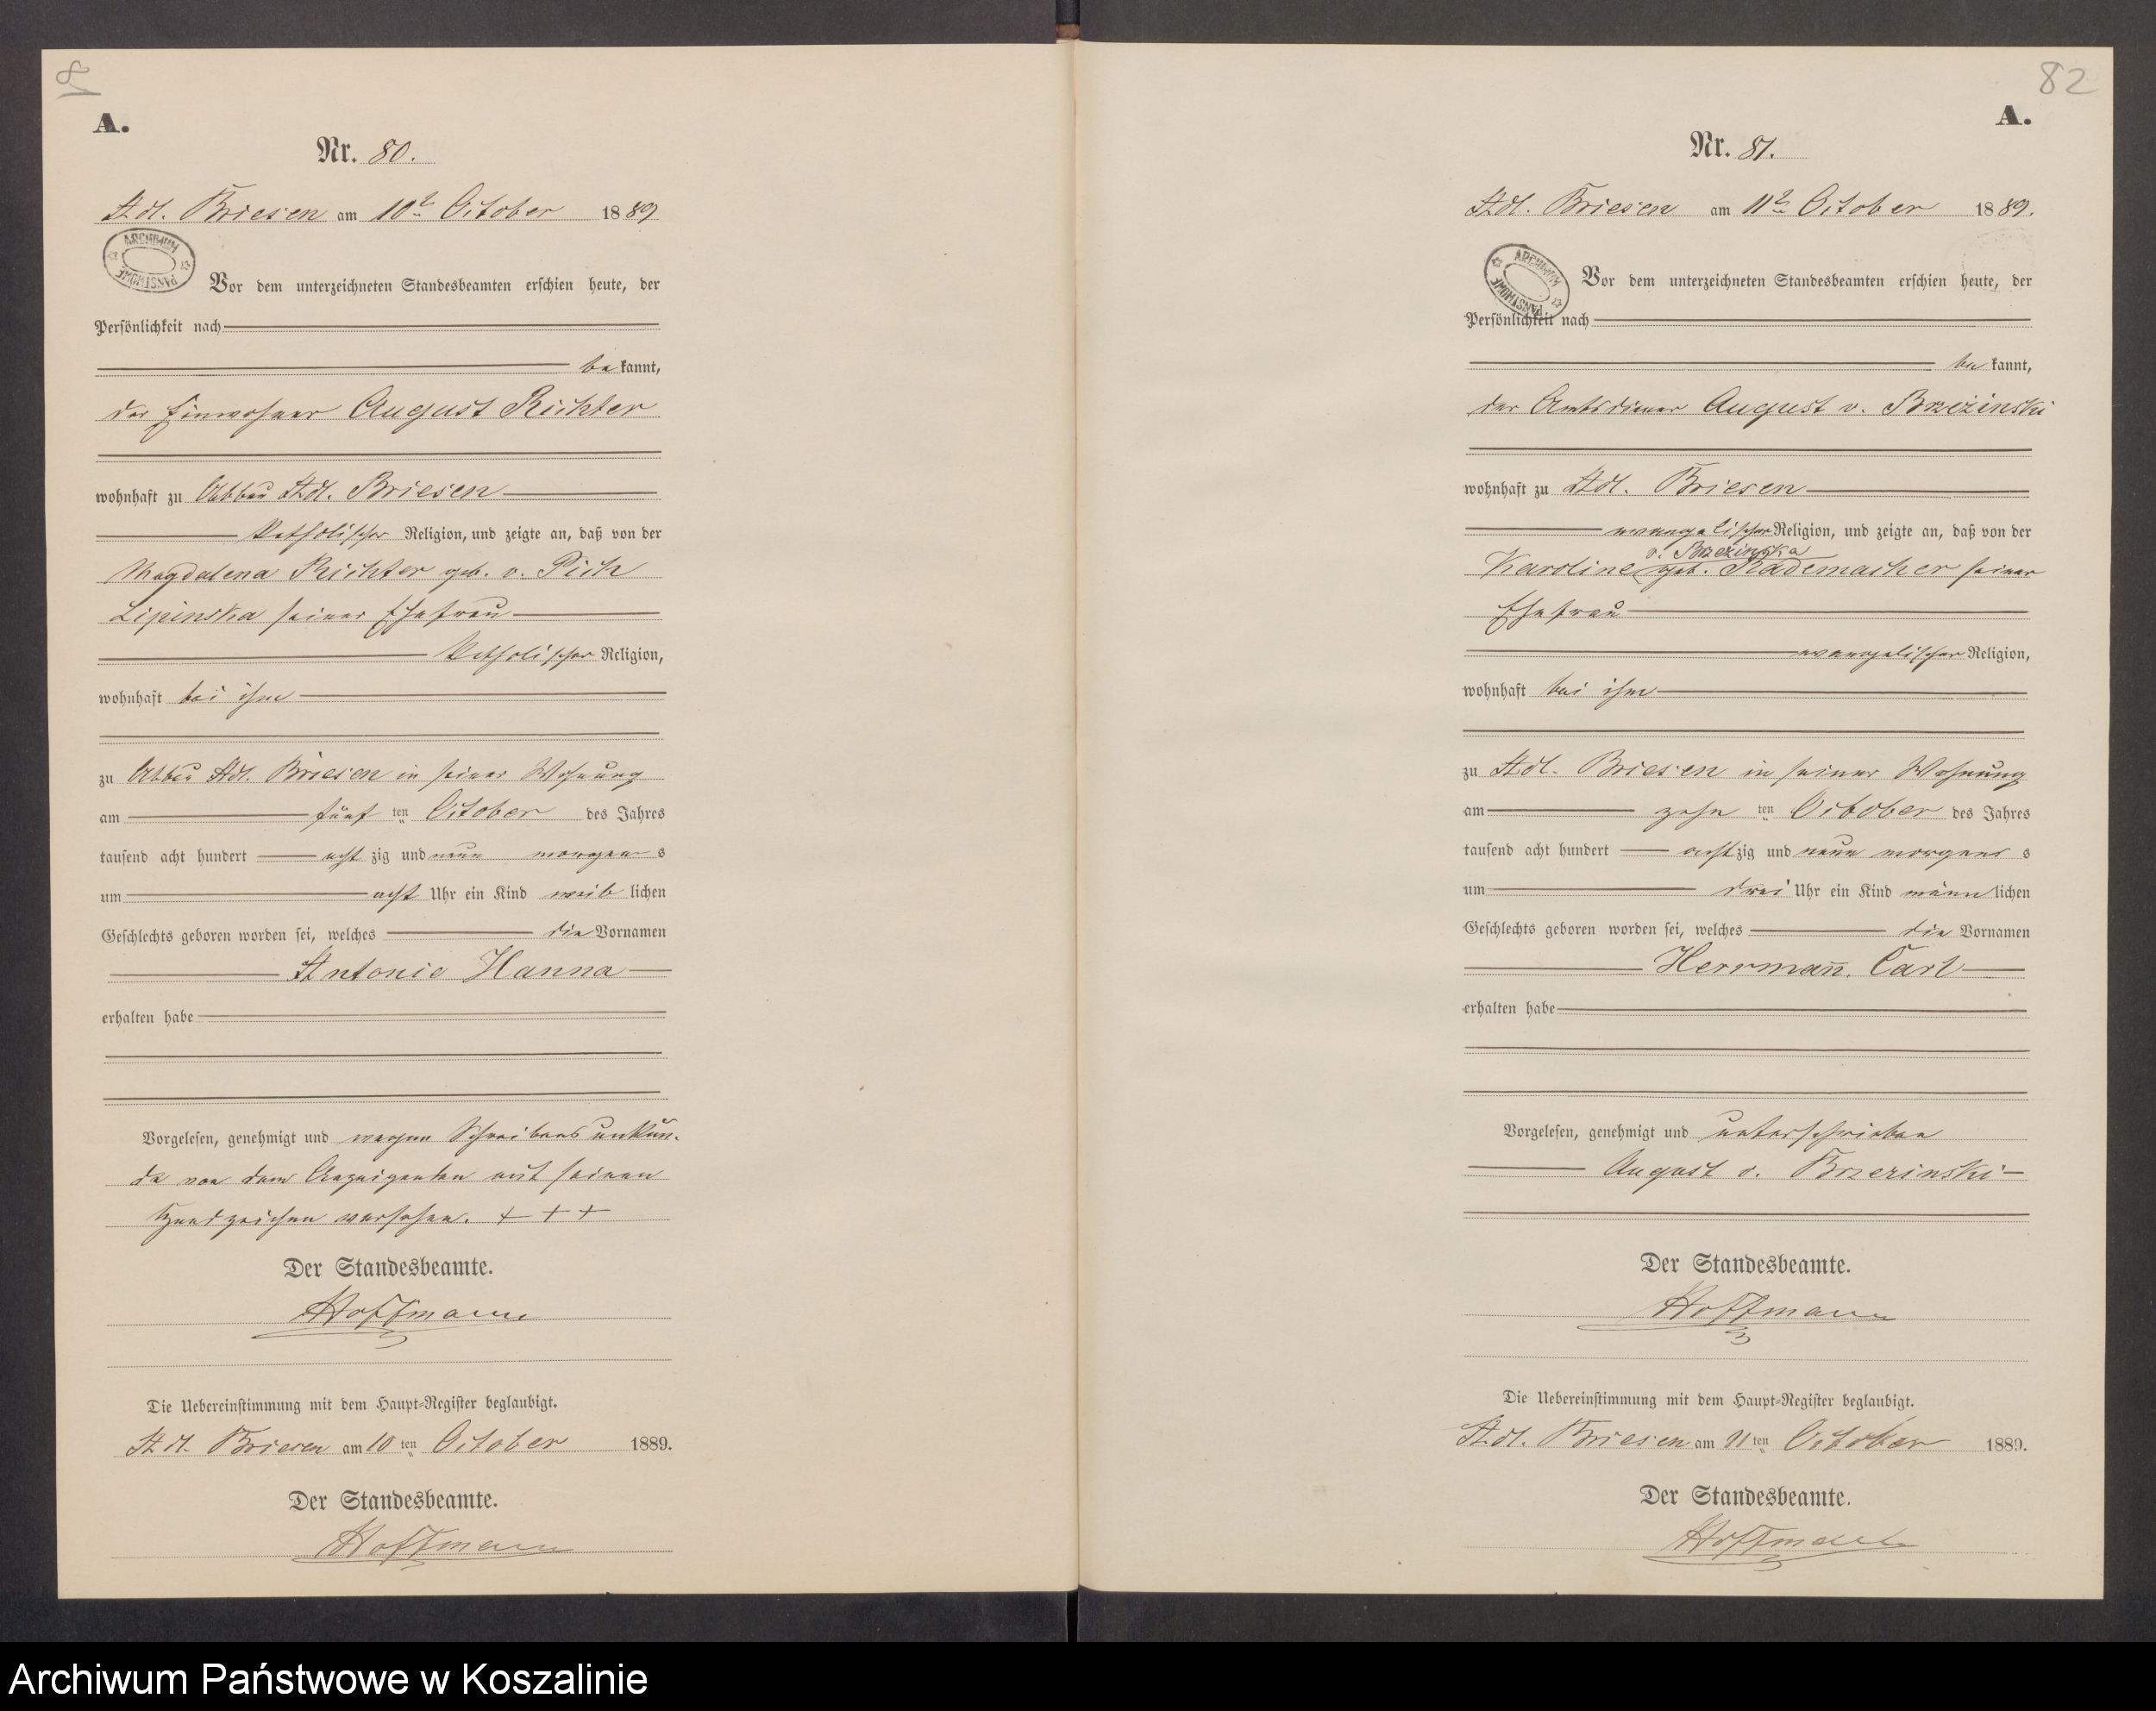 81
A.
Nr. 80.
Adl. Briesen am 10ten October 1889
ARCHIWUM PAŃSTWOWE
Vor dem unterzeichneten Standesbeamten erschien heute, der
Persönlichkeit nach
bekannt,
der Einwohner August Richter
wohnhaft zu Abbau Adl. Briesen
katholischer Religion, und zeigte an, daß von der
Magdalena Richter geb. v. Pich
Lipinska seiner Ehefrau
katholischer Religion,
wohnhaft bei ihm
zu Abbau Adl. Briesen in seiner Wohnung
am fünf ten October des Jahres
tausend acht hundert acht zig und neun morgens
um acht Uhr ein Kind weiblichen
Geschlechts geboren worden sei, welches die Vornamen
Antonie Hanna
erhalten habe
Vorgelesen, genehmigt und wegen Schreibensunkun-
de von dem Anzeigenden mit seinen
Handzeichen versehen. + + +
Der Standesbeamte.
Hoffmann
Die Uebereinstimmung mit dem Haupt-Register beglaubigt.
Adl. Briesen am 10 ten October 1889.
Der Standesbeamte.
Hoffmann
82
A.
Nr. 81.
Adl. Briesen am 11ten October 1889.
ARCHIWUM PAŃSTWOWE
Vor dem unterzeichneten Standesbeamten erschien heute, der
Persönlichkeit nach
bekannt,
der Amtsdiener August v. Brzezinski
wohnhaft zu Adl. Briesen
evangelischer Religion, und zeigte an, daß von der
v. Brzezinska
Karoline geb. Rademacher seiner
Ehefrau
evangelischer Religion,
wohnhaft bei ihm
zu Adl. Briesen in seiner Wohnung
am zehn ten October des Jahres
tausend acht hundert achtzig und neun morgens s
um drei Uhr ein Kind männlichen
Geschlechts geboren worden sei, welches die Vornamen
Herrmann̅. Carl
erhalten habe
Vorgelesen, genehmigt und unterschrieben
August v. Brzezinski
Der Standesbeamte.
Hoffmann
Die Uebereinstimmung mit dem Haupt-Register beglaubigt.
Adl. Briesen am 11 ten October 1889.
Der Standesbeamte.
Hoffmann
Archiwum Państwowe w Koszalinie